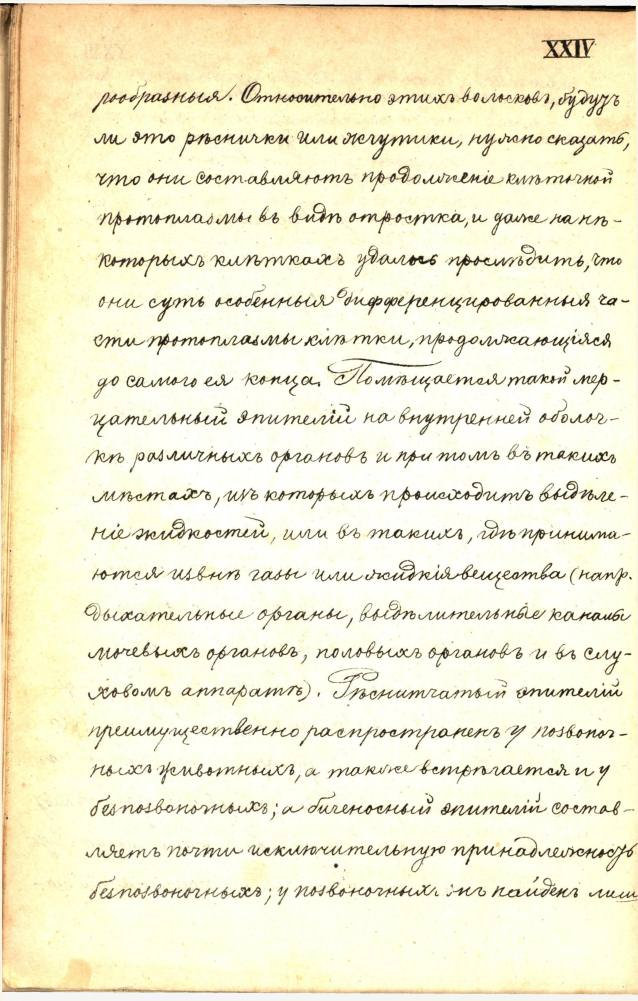 XXIV
рообразныя. Относительно этихъ волосковъ, будутъ
ли это рѣснички или жгутики, нужно сказать,
что они составляютъ продолженіе клѣточной
протоплазмы въ видѣ отростка, и даже на нѣ-
которыхъ клѣткахъ удалось прослѣдить, что
они суть особенныя дифференцированныя ча-
сти протоплазмы клѣтки, продолжающіяся
до самого ея конца. Помѣщается такой мер-
цательный эпителій на внутренней оболоч-
кѣ различныхъ органовъ и при томъ въ такихъ
мѣстахъ, изъ которыхъ происходитъ выдѣле-
ніе жидкостей, или въ такихъ, гдѣ принима-
ются извнѣ газы или жидкія вещества (напр.
дыхательные органы, выдѣлительные каналы
мочевыхъ органовъ, половыхъ органовъ и въ слу-
ховомъ аппаратѣ). Рѣснитчатый эпителій
преимущественно распространенъ у позвоноч-
ныхъ животныхъ, а также встрѣчается и у
безпозвоночныхъ; а биченосный эпителій состав-
ляетъ почти исключительную принадлежность
безпозвоночныхъ; у позвоночныхъ онъ найденъ лиш